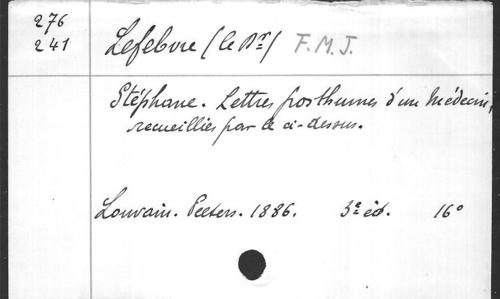 276
241
Lefebvre (le Dr) F. M. J.
Stéphane. Lettres posthumes d'un Médecin,
recueillies par le ci-dessus.
Louvain. Peeters. 1886. 3e éd. 16°